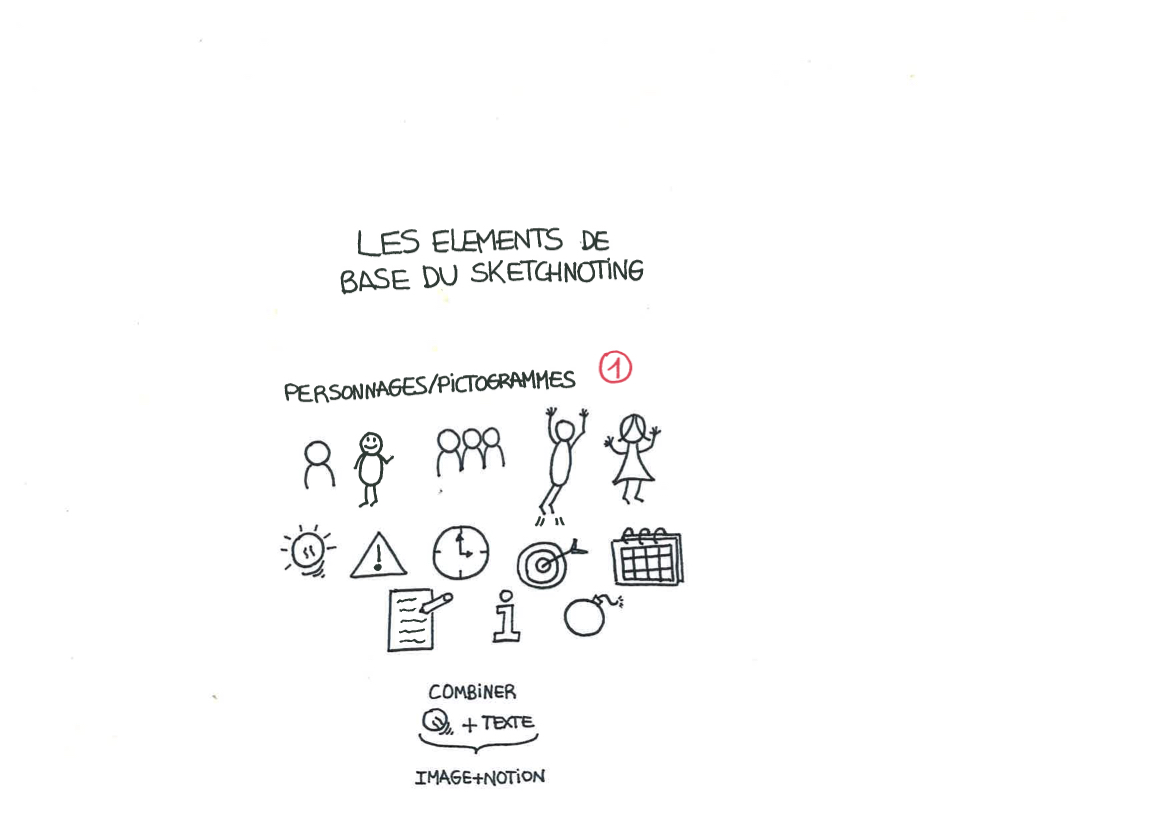 LES ELEMENTS DE
BASE DU SKETCHNOTING
PERSONNAGES/PICTOGRAMMES 1
COMBINER
+ TEXTE
IMAGE+NOTION